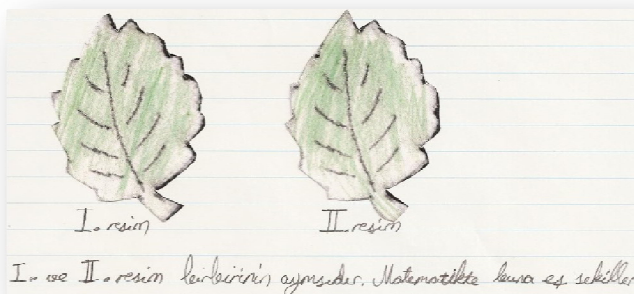 I. resim
II. resim
I. ve II. resim birbirinin aynısıdır. Matematikte buna eş şekiller